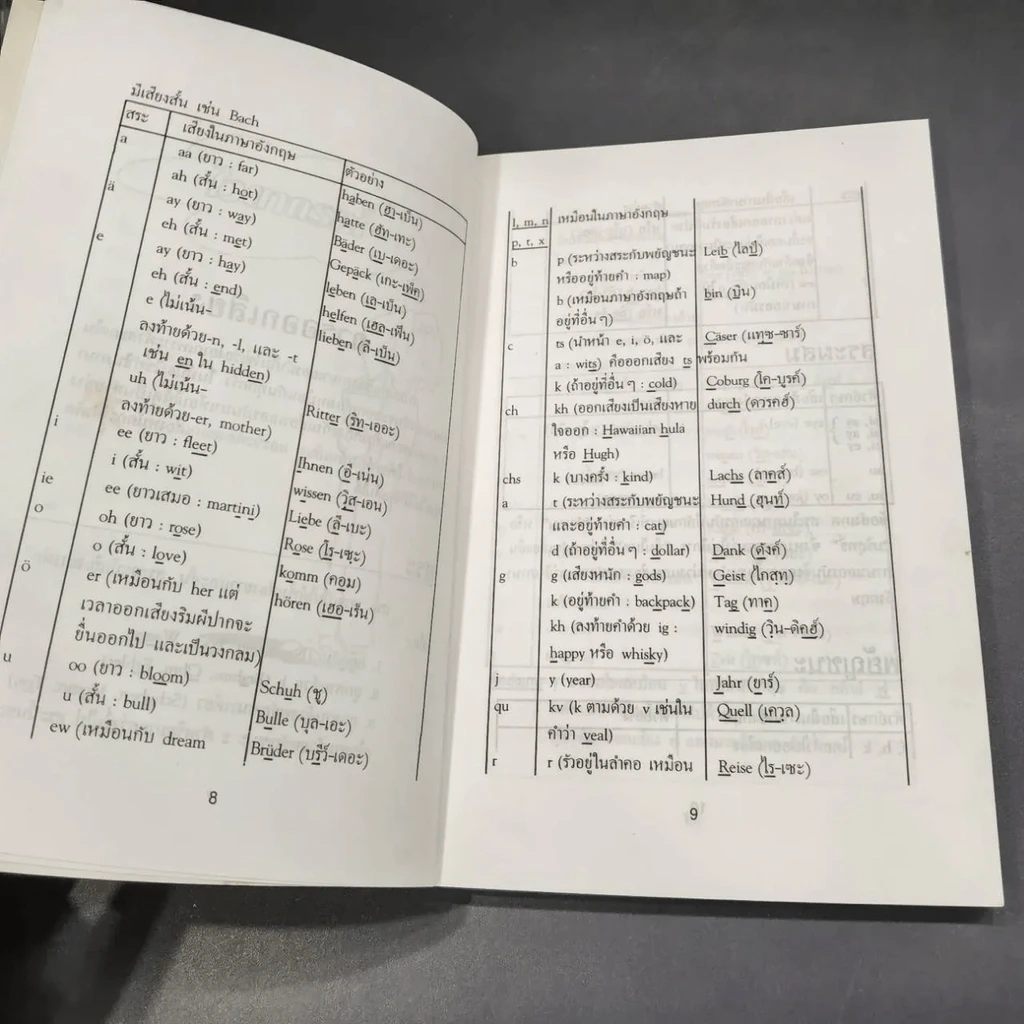 มีเสียงสั้น เช่น Bach
สระ เสียงในภาษาอังกฤษ ตัวอย่าง
a aa (ยาว : far) haben (ฮา-เบ็น)
ah (สั้น : hot) hatte (ฮัท-เทะ)
ä ay (ยาว : way) Bäder (เบ-เดอะ)
eh (สั้น : met) Gepäck (เกะ-เพ็ค)
e ay (ยาว : hay) leben (เล-เบ็น)
eh (สั้น : end) helfen (เฮล-เฟ็น)
e (ไม่เน้น- lieben (ลี-เบ็น)
ลงท้ายด้วย-n, -l, และ -t
เช่น en ใน hidden)
uh (ไม่เน้น- Ritter (ริท-เออะ)
ลงท้ายด้วย-er, mother)
i ee (ยาว : fleet) Ihnen (อี-เน่น)
i (สั้น : wit) wissen (วิส-เอน)
ie ee (ยาวเสมอ : martini) Liebe (ลี-เบะ)
o oh (ยาว : rose) Rose (โร-เซะ)
o (สั้น : love) komm (คอม)
ö er (เหมือนกับ her แต่ hören (เฮอ-เร็น)
เวลาออกเสียงริมฝีปากจะ
ยื่นออกไป และเป็นวงกลม)
u oo (ยาว : bloom) Schuh (ชู)
u (สั้น : bull) Bulle (บุล-เอะ)
ew (เหมือนกับ dream Brüder (บรีว์-เดอะ)
8
l, m, n เหมือนในภาษาอังกฤษ
p, t, x
b p (ระหว่างสระกับพยัญชนะ Leib (ไลป์)
หรืออยู่ท้ายคำ : map)
b (เหมือนภาษาอังกฤษถ้า bin (บิน)
อยู่ที่อื่น ๆ)
c ts (นำหน้า e, i, ö, และ Cäser (แทซ-ซาร์)
a : wits) คือออกเสียง ts พร้อมกัน
k (ถ้าอยู่ที่อื่น ๆ : cold) Coburg (โค-บูรค์)
ch kh (ออกเสียงเป็นเสียงหาย durch (ดวรคฮ์)
ใจออก : Hawaiian hula
หรือ Hugh)
chs k (บางครั้ง : kind) Lachs (ลาคส์)
a t (ระหว่างสระกับพยัญชนะ Hund (ฮุนท์)
และอยู่ท้ายคำ : cat)
d (ถ้าอยู่ที่อื่น ๆ : dollar) Dank (ดังค์)
g g (เสียงหนัก : gods) Geist (ไกสฺทฺ)
k (อยู่ท้ายคำ : backpack) Tag (ทาค)
kh (ลงท้ายคำด้วย ig : windig (วิน-ดิคฮ์)
happy หรือ whisky)
j y (year) Jahr (ยาร์)
qu kv (k ตามด้วย v เช่นใน Quell (เควฺล)
คำว่า veal)
r r (รัวอยู่ในลำคอ เหมือน Reise (ไร-เซะ)
9